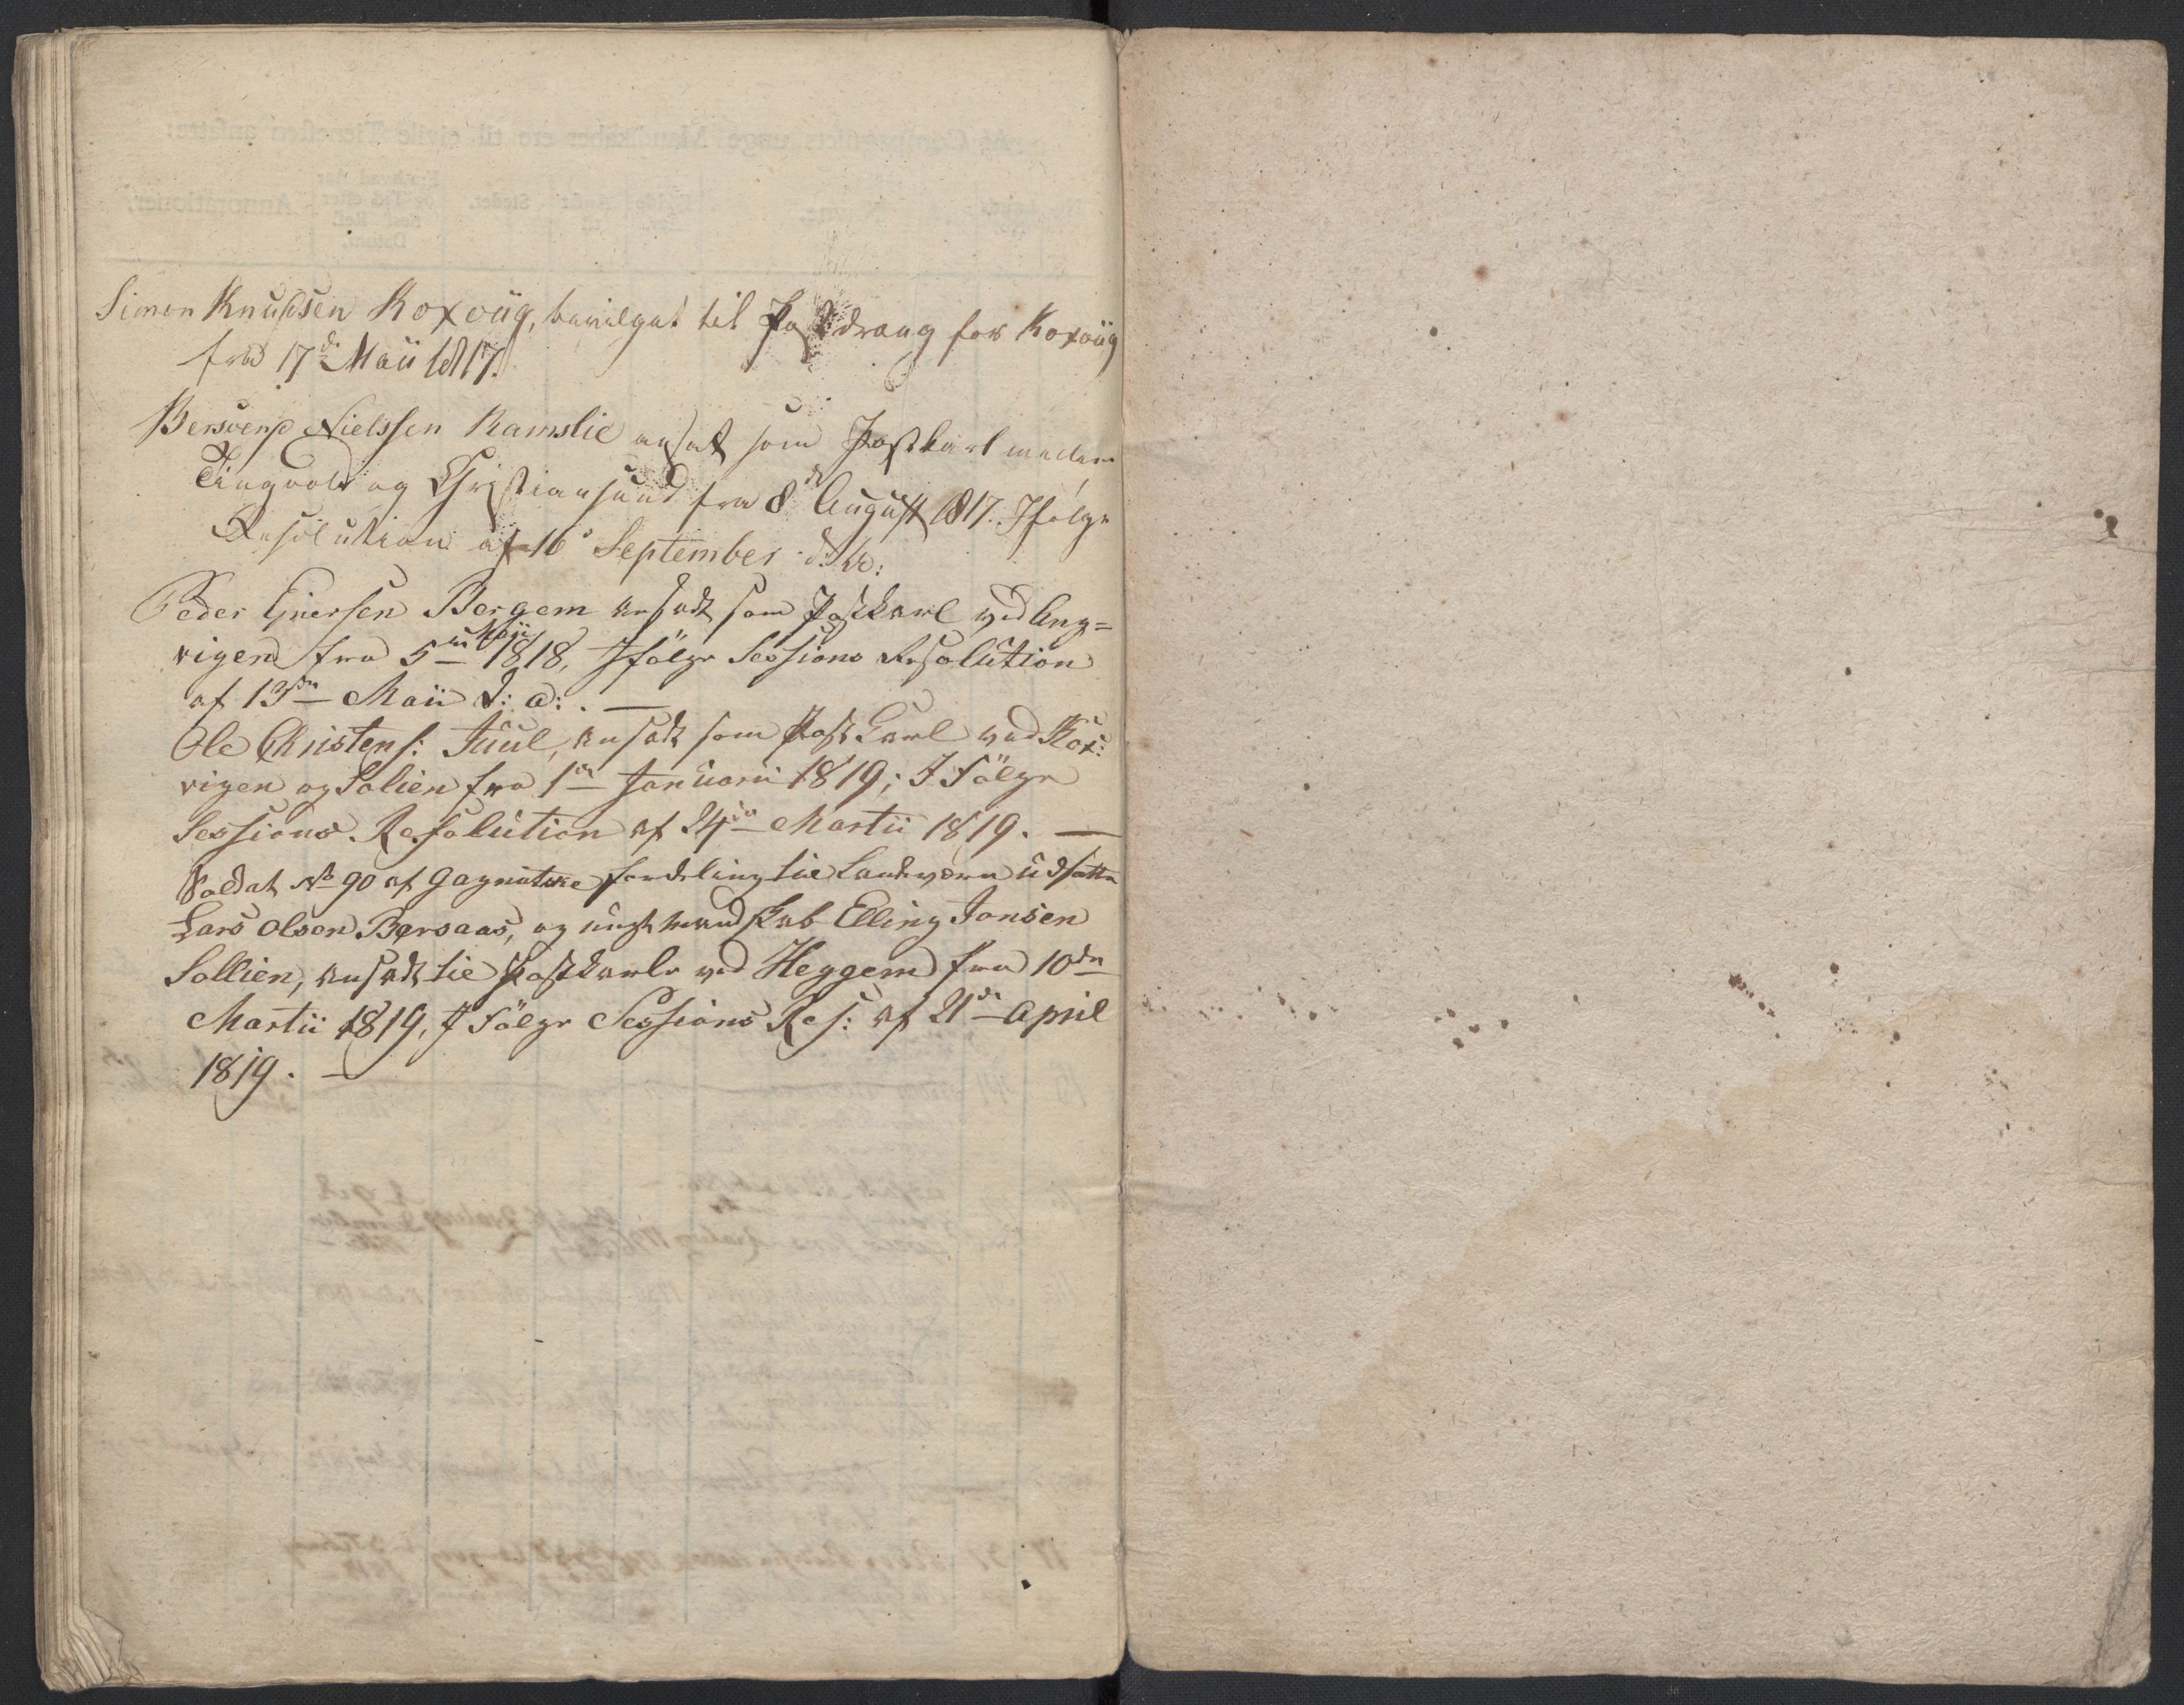 Simon Knudsen Koxvüg, bevilget til Postdreng for Koxvüg
fra 17de Maii 1817.
Bersvend Nielssen Ramslie ansat som Postkarl mellem
Tingvold og Christiansund fra 8de August 1817. Ifølge
Resolution af 16de September d: A:
Peder Eriersen Bergem ansadt som Postkarl ved Ang=
vigen fra 5te Maji 1818, Ifølge Sessions Resolution
af 13de Maii d: a: . —
Ole Christens: Juul, ansadt som Post Karl ved Kox:
vigen og Solien fra 1te Januarii 1819; I Følge
Sessions Resolution af 24de Martii 1819. —
Soldat No 90 af fordeling til Landværn udsatte
Lars Olsen Bersaas, og ungt mandskab Elling Jonsen
Sollien, ansadt til Postkarle ved Heggem fra 10de
Martii 1819, I Følge Sessions Res: af 21de April
1819. —